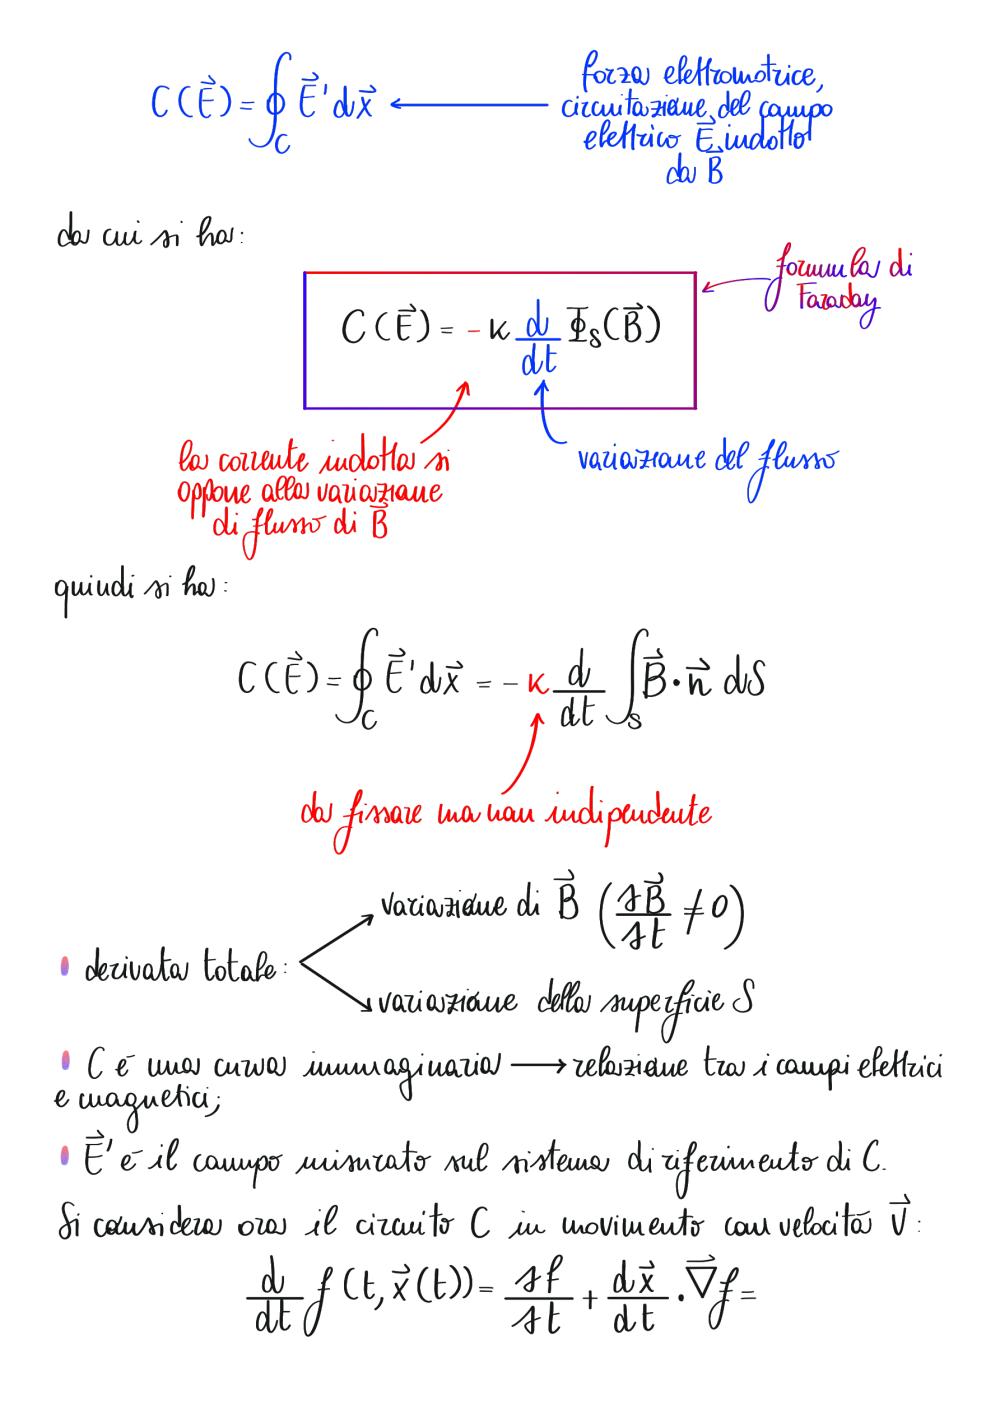 C(E⃗) = ∮_C E⃗' dx⃗ ←
forza elettromotrice,
circuitazione del campo
elettrico E⃗ indotto
da B⃗
da cui si ha:
formula di
Faraday
C(E⃗) = - κ d/dt Φ_S(B⃗)
la corrente indotta si
oppone alla variazione
di flusso di B⃗
variazione del flusso
quindi si ha:
C(E⃗) = ∮_C E⃗' dx⃗ = - κ d/dt ∫_S B⃗ · n⃗ dS
da fissare ma non indipendente
variazione di B⃗ (∂B⃗/∂t ≠ 0)
• derivata totale:
variazione della superficie S
• C è una curva immaginaria → relazione tra i campi elettrici
e magnetici;
• E⃗' è il campo misurato sul sistema di riferimento di C.
Si considera ora il circuito C in movimento con velocità V⃗:
d/dt f(t, x⃗(t)) = ∂f/∂t + dx⃗/dt · ∇⃗f =